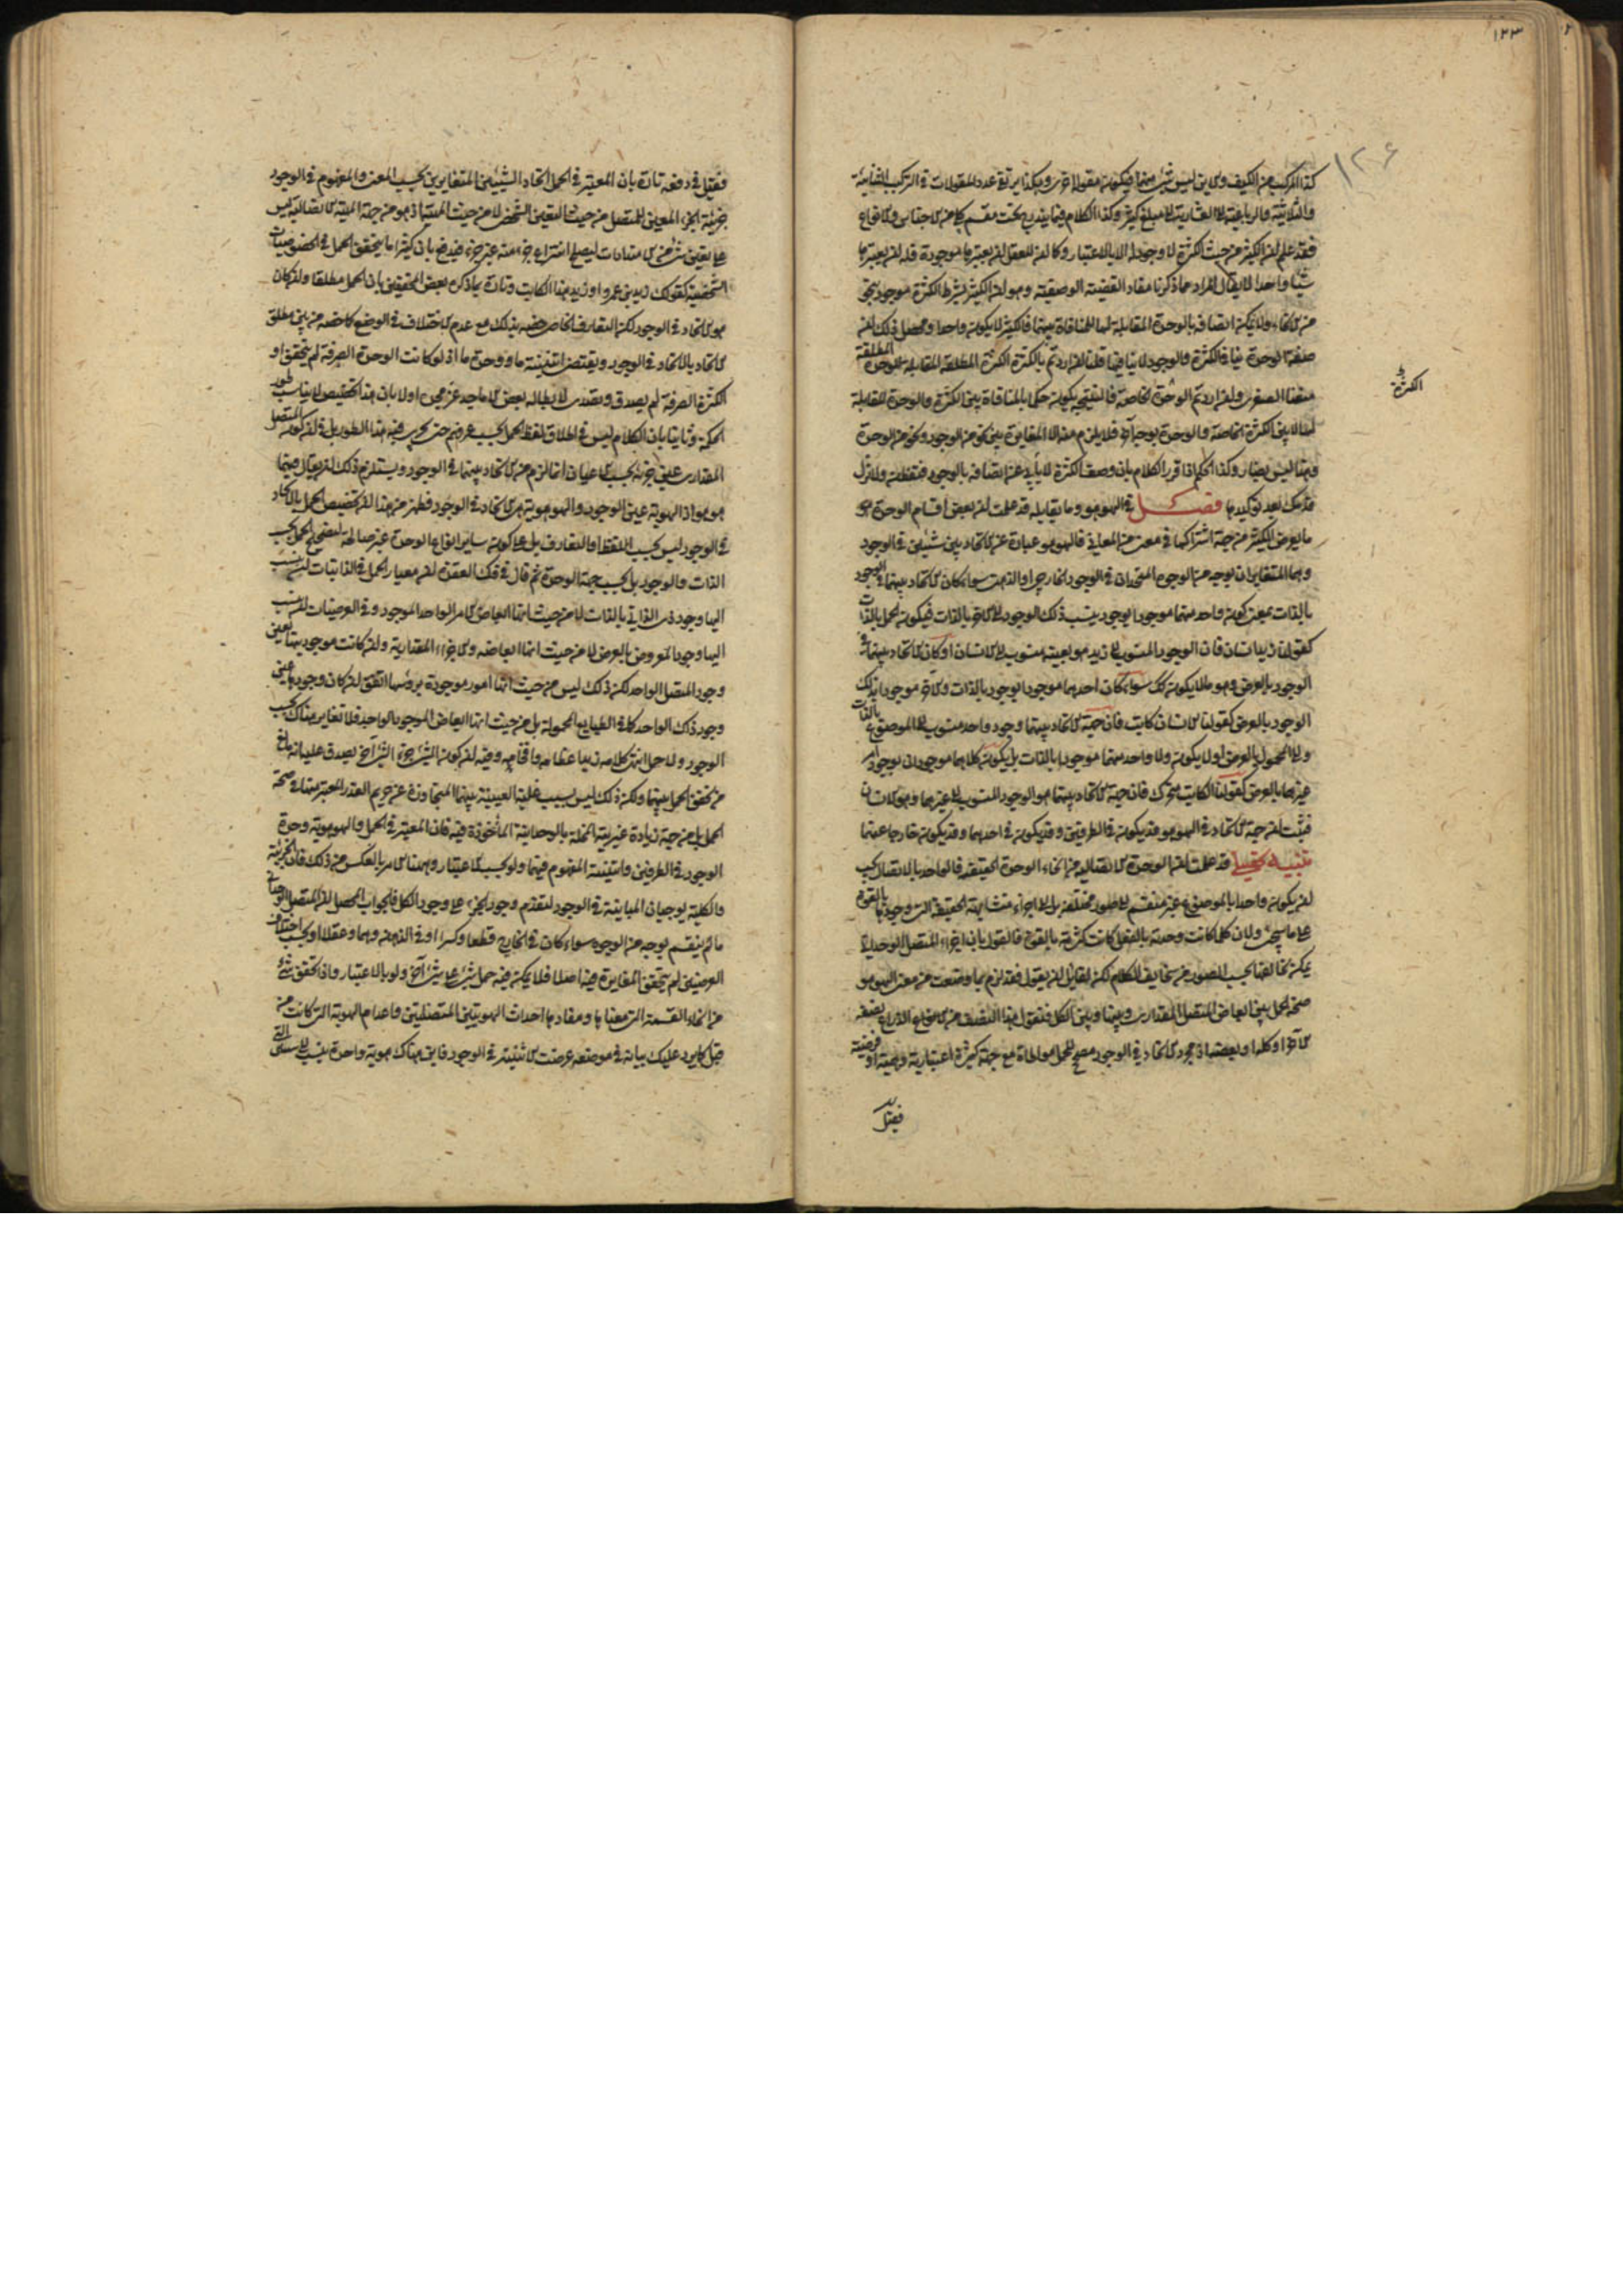 ١٢٣
١٢٦
كذا المركب من الكيف والاين ليس شئ منهما فيكون مقولة اخرى وهكذا يرتقى عدد المقولات فى التركيب الثنائية
والثلاثية والرباعية الى العشارية الى مبلغ كثير وكذا الكلام فيما يندرج تحت مقسم كل من الاجناس والانواع
فقد علم ان الكثير من حيث الكثرة لا وجود له الا بالاعتبار وكما ان للعقل ان يعتبرها موجودة فله ان يعتبرها
شيئا واحدا لا يقال المراد مما ذكرنا مفاد القضية الوصفية وهو ان الكثير بشرط الكثرة موجود بنحو
من الانحاء ولا يمكن اتصافه بالوحدة المقابلة لها للمنافاة بينهما فالكثير لا يكون واحدا ومحصل ذلك ان
صفة الوحدة ينافى الكثرة والوجود لا ينافيها قلنا ان اردتم بالكثرة الكثرة المطلقة المقابلة للوحدة المطلقة
منعنا الصغرى وان اردتم الوحدة الخاصة فالنتيجة يكون حكما بالمنافاة بين الكثرة والوحدة المقابلة
الكثرة
لها لا بين الكثرة الخاصة والوحدة بوجه آخر فلا يلزم منه الا المغايرة بين نحو من الوجود ونحو من الوحدة
وهذا ليس بضار وكذا الحكم اذا قرر الكلام بان وصف الكثرة لا يأبى عن اتصافه بالوجود فتفطن ولا تزل
قدمك بعد توكيدها فصل فى الهوهو وما يقابله قد علمت ان بعض اقسام الوحدة هو
ما يعرض الكثير من جهة اشتراكها فى معنى من المعانى فالهوهو عبارة عن الاتحاد بين شيئين فى الوجود
وهما المتغايران بوجه من الوجوه المتحدان فى الوجود الخارجى او الذهنى سواء كان الاتحاد بينهما فى الوجود
بالذات بمعنى كون واحد منهما موجودا بوجود ينسب ذلك الوجود الى الآخر بالذات فيكون الحمل بالذات
كقولنا زيد انسان فان الوجود المنسوب الى زيد هو بعينه منسوب الى الانسان او كان الاتحاد بينهما فى
الوجود بالعرض وهو ما لا يكون كك سواء كان احدهما موجودا بوجود بالذات والآخر موجودا بذلك
الوجود بالعرض كقولنا الانسان كاتب فان جهة الاتحاد بينهما وجود واحد منسوب الى الموضوع بالذات
والى المحمول بالعرض او لا يكون ولا واحد منهما موجودا بالذات بل يكون كلاهما موجودان بوجود امر
غيرهما بالعرض كقولنا الكاتب متحرك فان جهة الاتحاد بينهما هو الوجود المنسوب الى غيرهما وهو الانسان
فثبت ان جهة الاتحاد فى الهوهو قد يكون فى الطرفين وقد يكون فى احدهما وقد يكون خارجا عنهما
قد علمت ان الوحدة الاتصالية من انحاء الوحدة الحقيقية فالواحد بالاتصال يجب
ان يكون واحدا بالموضوع غير منقسم الى صور مختلفة بل الى اجزاء متشابهة الحقيقة التى وجودها بالقوة
على ما سيجئ ولان كل ما كانت وحدته بالفعل كانت كثرته بالقوة فالقول بان اجزاء المتصل الوحدانى
يمكن تخالفها بحسب الصور من سخايف الكلام لكن لقائل ان يقول فقد لزم بما وضعت من معنى الهوهو
صحة الحمل بين ابعاض المتصل المقدارى وبينها وبين الكل فنقول هذا النصف من الذراع نصفه
الآخر او كله او بعضه اذ مجرد الاتحاد فى الوجود مصحح للحمل مواطاة مع جهة كثرة اعتبارية وهمية او فرضية
فقيل
فقيل فى دفعه تارة بان المعتبر فى الحمل اتحاد الشيئين المتغايرين بحسب المعنى والمفهوم فى الوجود
جزئية الجزء المعين للمتصل من حيث التعين الشخصى لا من حيث المهية اذ هو من جهة المهية الاتصالية ليس
على تعين شئ من الامتدادات ليصلح انتزاع جزء منه غير جزء فيدفع بان كثيرا ما يتحقق الحمل فى الخصوصيات
الشخصية كقولك زيد بن عمرو او زيد هذا الكاتب وتارة بما ذكره بعض المحققين بان الحمل مطلقا وان كان
هو الاتحاد فى الوجود لكن التعارف الخاص خصه بذلك مع عدم الاختلاف فى الوضع كما خصه من بين مطلق
الاتحاد بالاتحاد فى الوجود ويقتضى اثنينية ما ووحدة ما اذ لو كانت الوحدة الصرفة لم يتحقق او
الكثرة الصرفة لم يصدق وتصدى لابطاله بعض الاماجد عز مجده اولا بان هذا التخصيص لا يناسب طور
الحكمة وثانيا بان الكلام ليس فى اطلاق لفظ الحمل بحسب عرفهم حتى يجرى فيه هذا الطور بل فى ان كون المتصل
المقدارى عين جزئه بحسب الاعيان انما لزم من الاتحاد بينهما فى الوجود ويستلزم ذلك ان يقال فيهما
هو هو اذ الهوية عين الوجود والهوهوية هى الاتحاد فى الوجود فظهر من هذا ان تخصيص الحمل بالاتحاد
فى الوجود ليس بحسب اللفظ او التعارف بل على كون ساير انواع الوحدة غير صالحة لتصحيح الحمل بحسب
الذات والوجود بل بحسب جهة الوحدة ثم قال فى فك العقدة ان معيار الحمل فى الذاتيات ان ينسب
اليها وجود ذى الذاتى بالذات لا من حيث انها ابعاض الامر الواحد الموجود وفى العرضيات ان ينسب
اليها وجود المعروض بالعرض لا من حيث انها ابعاضه والاجزاء المقدارية وان كانت موجوديتها بعين
وجود المتصل الواحد لكن ذلك ليس من حيث انها امور موجودة برؤسها اتفق ان كان وجودها عين
وجود ذاك الواحد كما فى الطبايع المحمولة بل من حيث انها ابعاض الموجود الواحد فلا تغاير هناك بحسب
الوجود ولا حمل انتهى كلامه زيد اعظامه وافخامه وفيه ان كون الشئ جزء الشئ آخر يصدق عليه انه مانع
من تحقق الحمل بينهما ولكن ذلك ليس بسبب غلبة العينية بينهما المتجاوزة عن حريم القدر المعتبر منها فى صحة
الحمل بل من جهة زيادة غيرية المخلة بالوحدانية المأخوذة فيه فان المعتبر فى الحمل والهوهوية وحدة
الوجود فى الطرفين واثنينية المفهوم فيهما ولو بحسب الاعتبار وههنا الامر بالعكس من ذلك فان الجزئية
والكلية يوجبان المباينة فى الوجود لتقدم وجود الجزء على وجود الكل فالجواب المحصل ان المتصل الوحدانى
ما لم ينقسم بوجه من الوجوه سواء كان فى الخارج قطعا وكسرا او فى الذهن وهما وعقلا او بحسب اختلاف
العرضين لم يتحقق المغايرة فيه اصلا فلا يمكن فيه حمل شئ على شئ آخر ولو بالاعتبار واذا تحقق شئ
من انحاء القسمة التى معناها ومفادها احداث الهويتين المتصلتين واعدام الهوية التى كانت من
قبل كما يرد عليك بيانه فى موضعه عرضت الاثنينية فى الوجود فاين هناك هوية واحدة ينسب الى شيئين